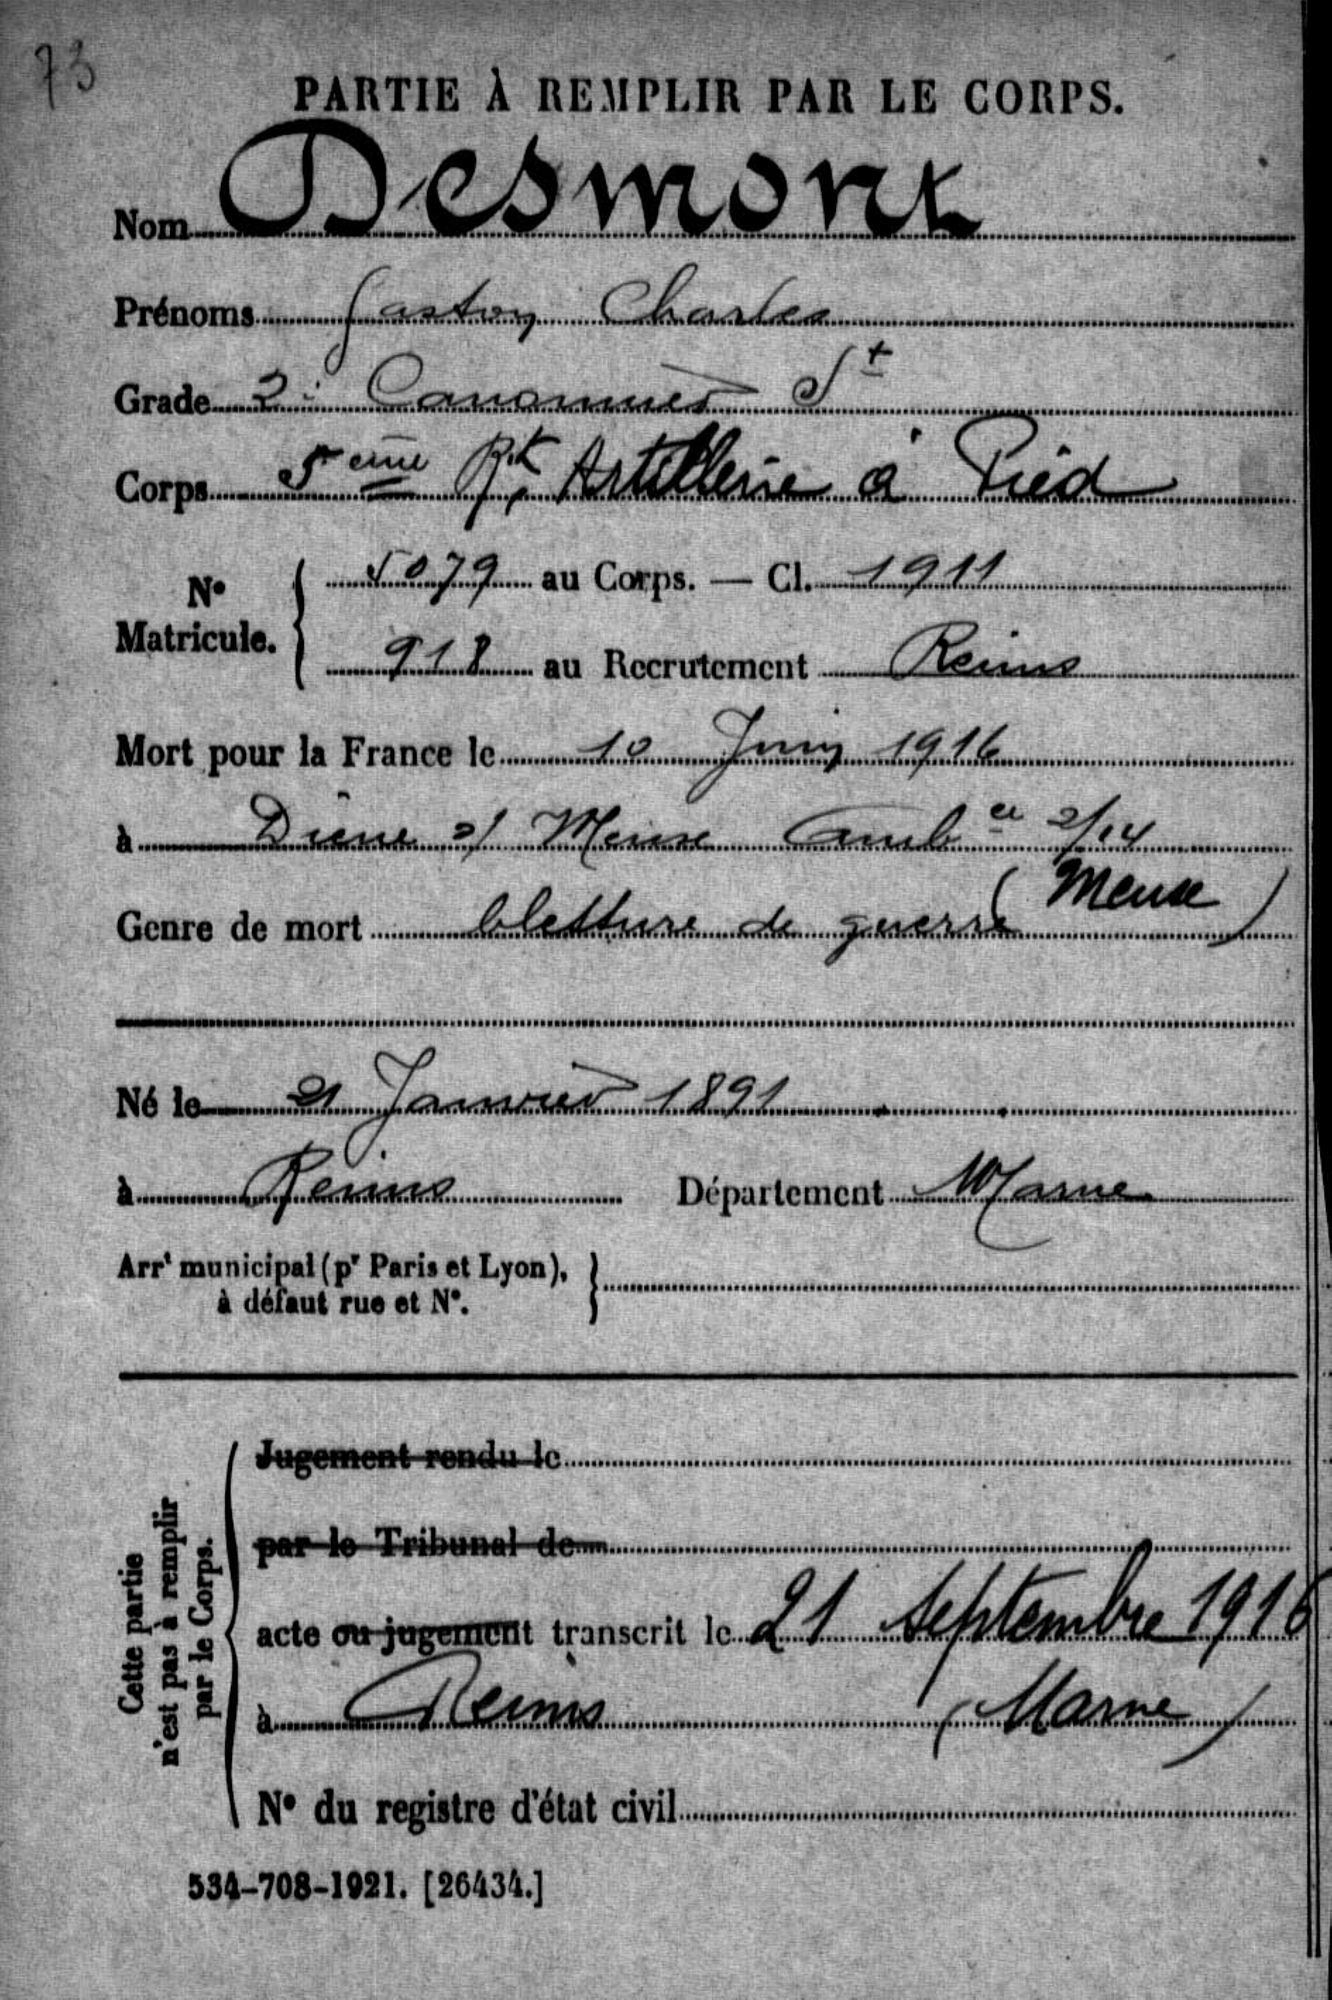 73
PARTIE À REMPLIR PAR LE CORPS.
Nom Desmont
Prénoms Gaston Charles
Grade 2e Canonnier St
Corps 5eme Rt Artillerie à Pied
N° Matricule. { 5079 au Corps. — Cl. 1911
918 au Recrutement Reims
Mort pour la France le 10 Juin 1916
à Diene s/ Meuse Ambce 2/14
(Meuse)
Genre de mort blessure de guerre
Né le 21 Janvier 1891
à Reims Département Marne
Arrt municipal (pr Paris et Lyon), }
à défaut rue et N°.
Cette partie
n'est pas à remplir
par le Corps.
Jugement rendu le
par le Tribunal de
acte ou jugement transcrit le 21 Septembre 1916
à Reims (Marne)
N° du registre d'état civil
534-708-1921. [26434.]